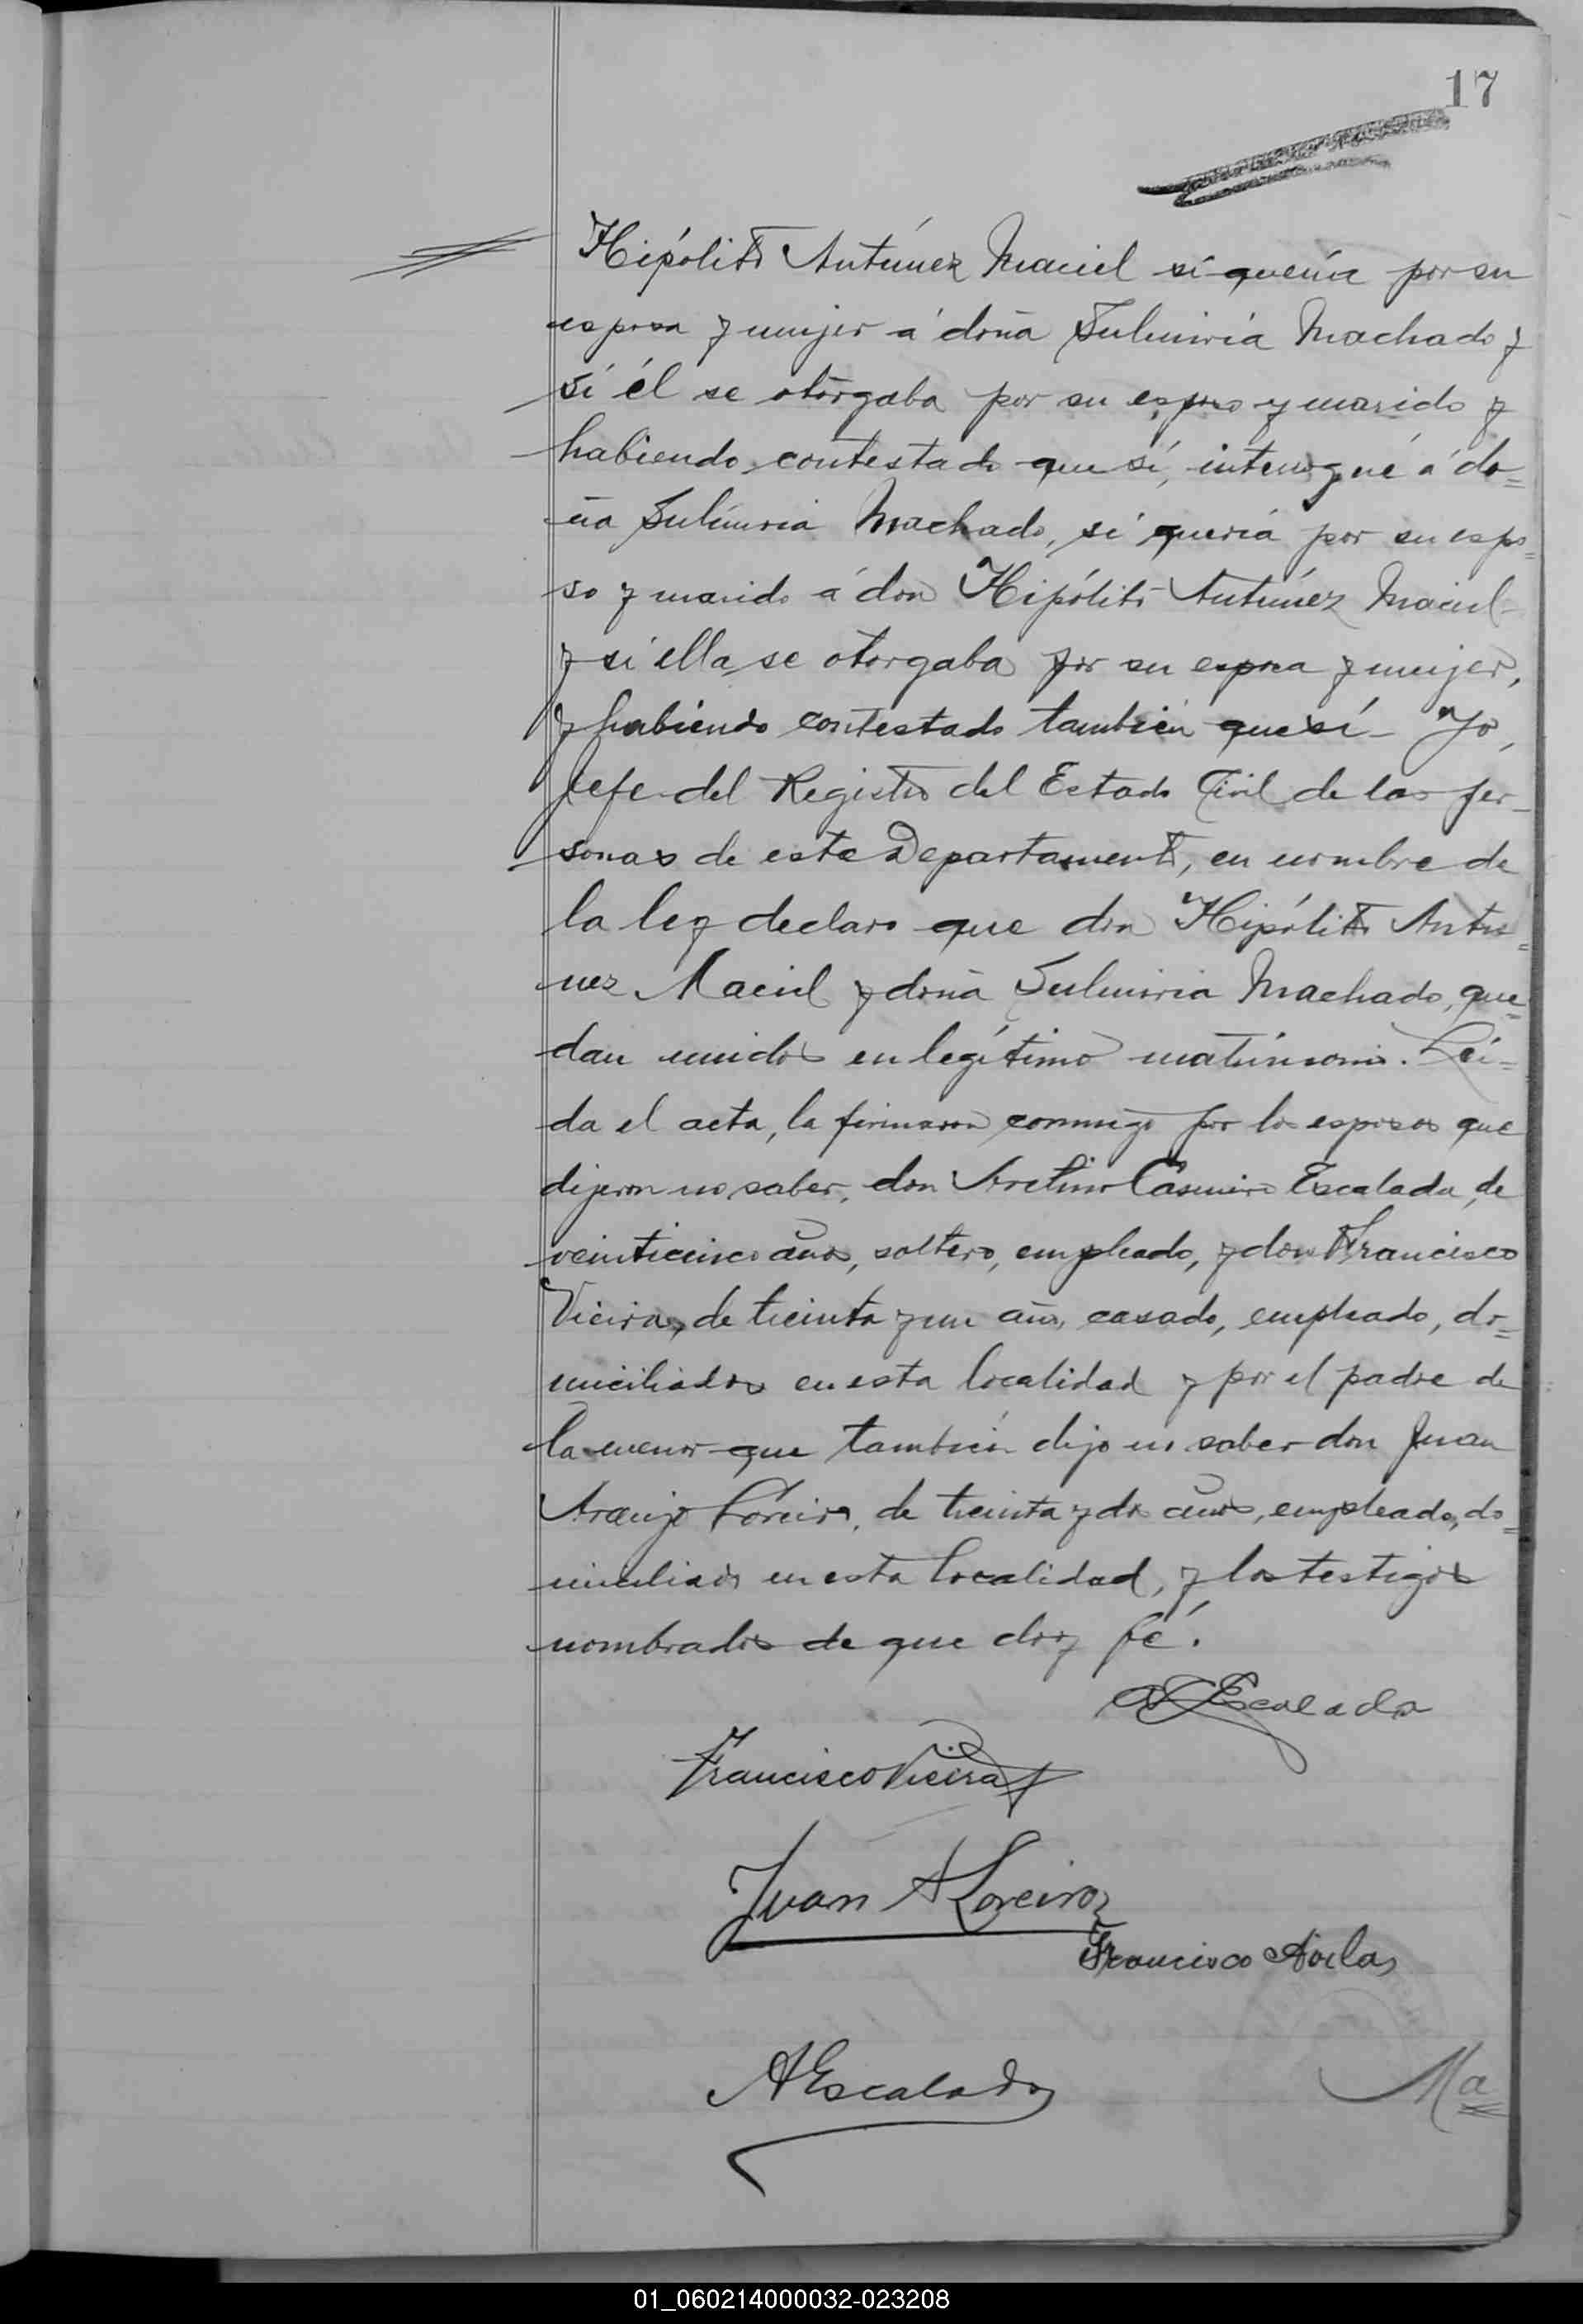 17
Hipólito Antúnez Maciel si quería por su
esposa y mujer á doña Sulmiria Machado y
si él se otorgaba por su esposo y marido y
habiendo contestado que sí, interrogué á do=
ña Sulmiria Machado, si quería por su espo=
so y marido á don Hipólito Antúnez Maciel
y si ella se otorgaba por su esposa y mujer,
y habiendo contestado también que sí— Yo,
Jefe del Registro del Estado Civil de las per-
sonas de este Departamento, en nombre de
la ley declaro que don Hipólito Antu=
nez Maciel y doña Sulmiria Machado, que=
dan unidos en legítimo matrimonio. Leí=
da el acta, la firmaron conmigo por los esposos que
dijeron no saber, don Casimiro Escalada, de
veinticinco años, soltero, empleado, y don Francisco
Vieira, de treinta y un años, casado, empleado, do=
miciliados en esta localidad y por el padre de
la menor que también dijo no saber don Juan
Araujo Loreiro, de treinta y dos años, empleado, do=
miciliado en esta localidad, y los testigos
nombrados de que doy fé.
Escalada
Francisco Vieira
Juan A Loreiro
Francisco Avila
AEscalada
Ma
01_060214000032-023208